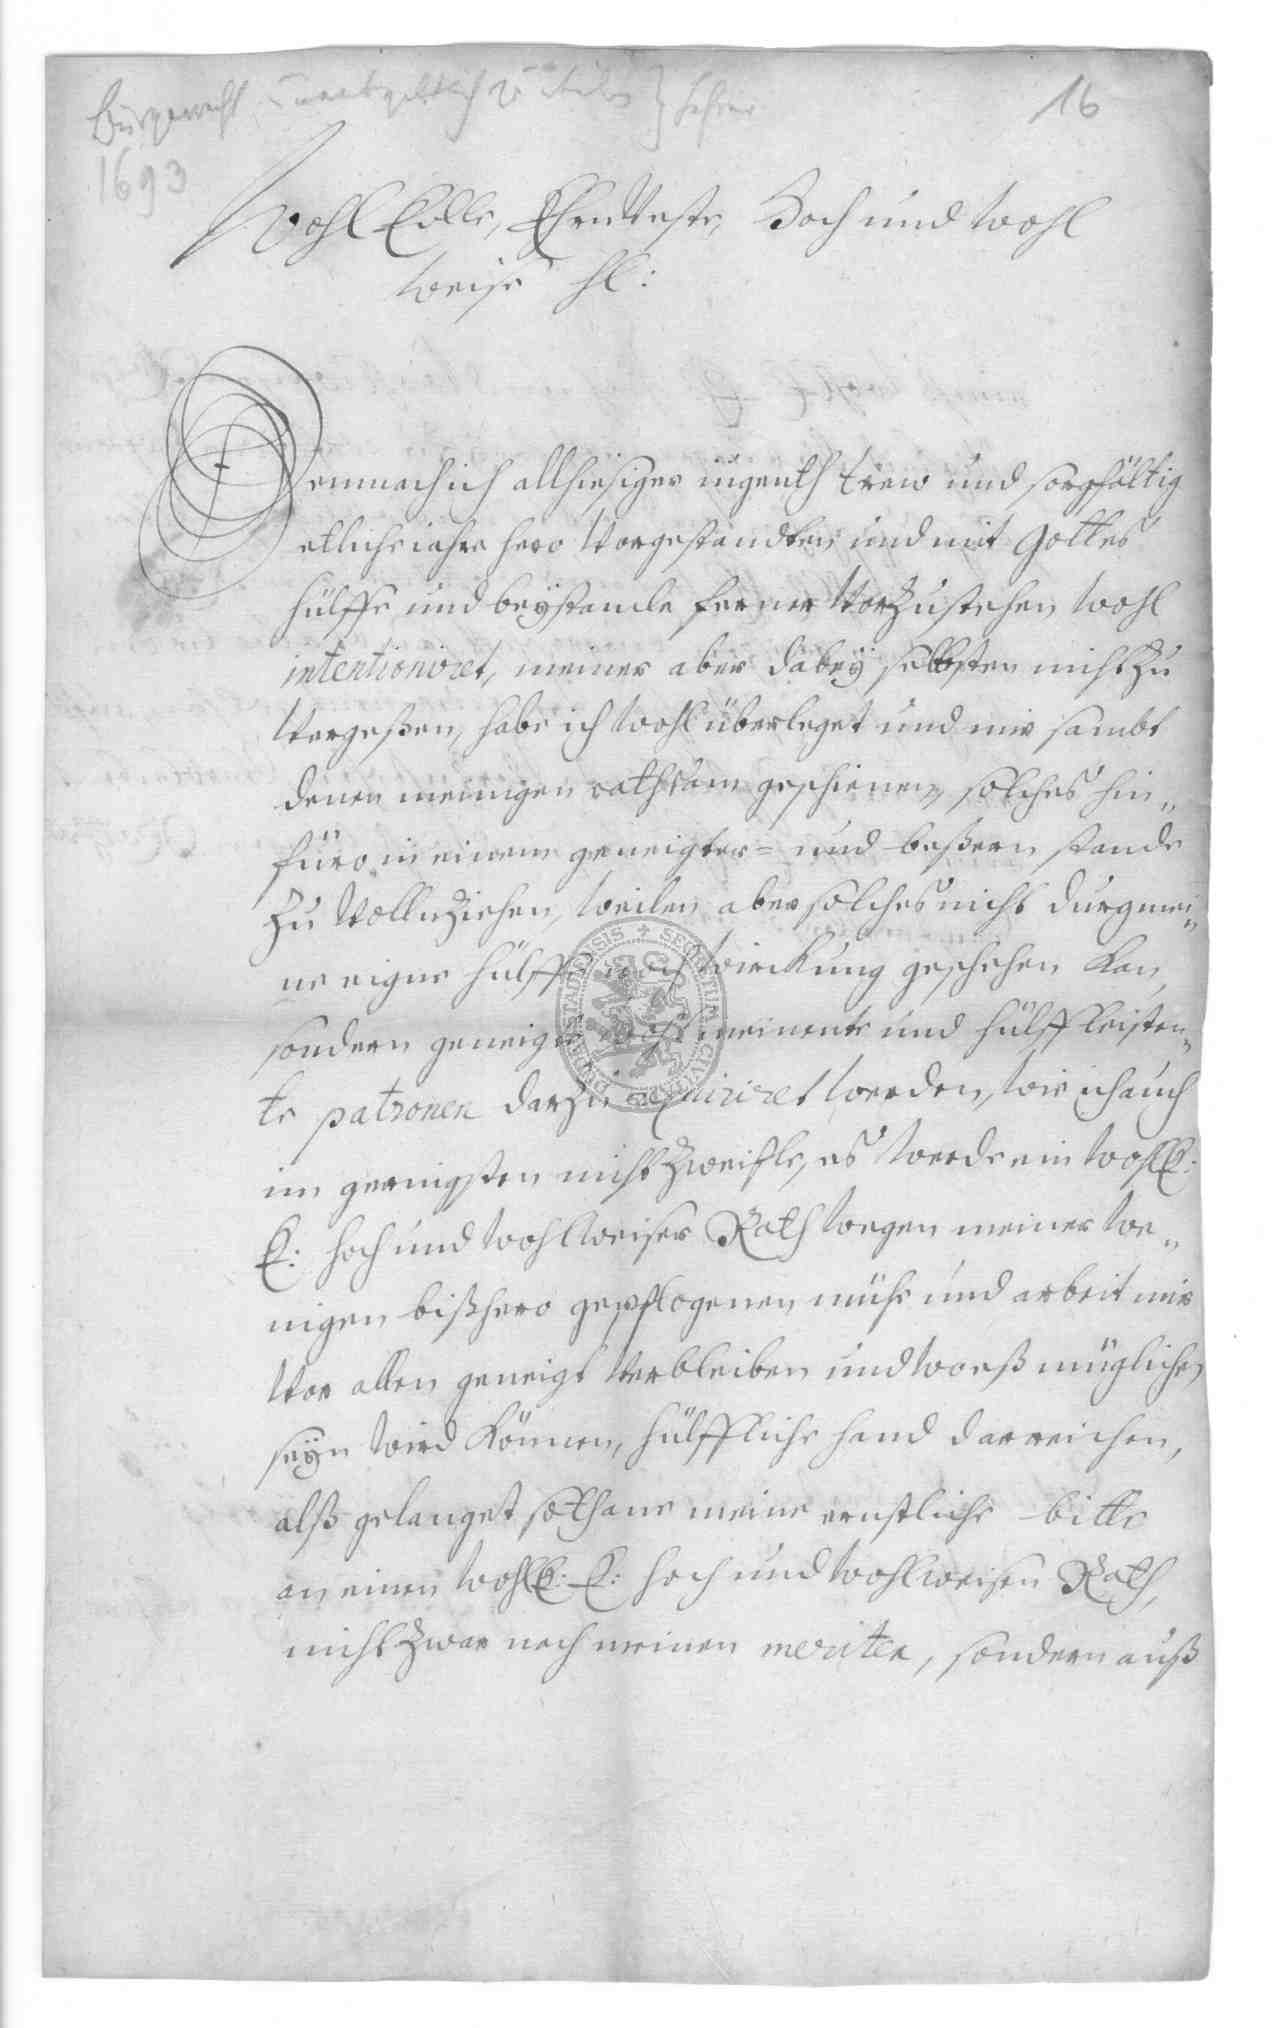 Bürgerrecht unentgeltlich zu
16
1693
Wohl Edle, Ehrnveste, Hoch und Wohl
weise H:
Demnach ich allhiesiger iugenth trew und sorgfältig
etliche iahre hero Vorgestandten und mit Gottes
hülffe und beystande ferner Vorzustehen wohl
intentioniret, meiner aber dabey selbsten nicht zu
Vergeßen, habe ich wohl überleget und mir sambt
denen meinigen rathsam geschienen, solches hin„
füro in einem geneigter= und beßern stande
zu Vollnziehen, weilen aber solches nicht durg mei„
ne eigne hülffe noch wirckung geschehen kan,
sondern geneigt wohl meinente und hülffleisten„
te patronen darzu requiriret werden, wie ich auch
im geringsten nicht zweifle, es werde ein WohlE:
E: hoch und wohlweiser Rath wegen meiner we„
nigen bißhero gepflogenen mühe und arbeit mir
Vor allen geneigt verbleiben und woeß müglichen
seyn wird können, hülffliche hand darreichen,
alß gelanget sothane meine ernstliche bitte
an einen WohlE: E: hoch und wohlweisen Rath,
nicht zwar nach meinen meriten, sondern auß